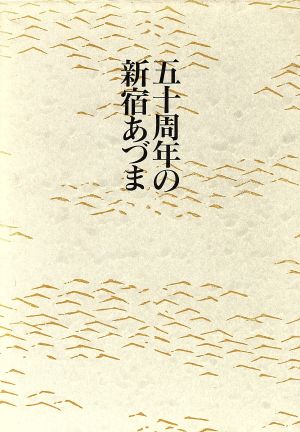 五十周年の
新宿あづま